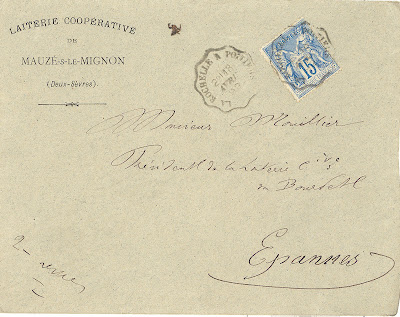 LAITERIE COOPÉRATIVE
DE
MAUZÉ-S-LE-MIGNON
(Deux-Sèvres)
LA ROCHELLE A POITIERS
15
Monsieur Mouillier
Président de la Laiterie Cive
du Bourdet
Epannes
2